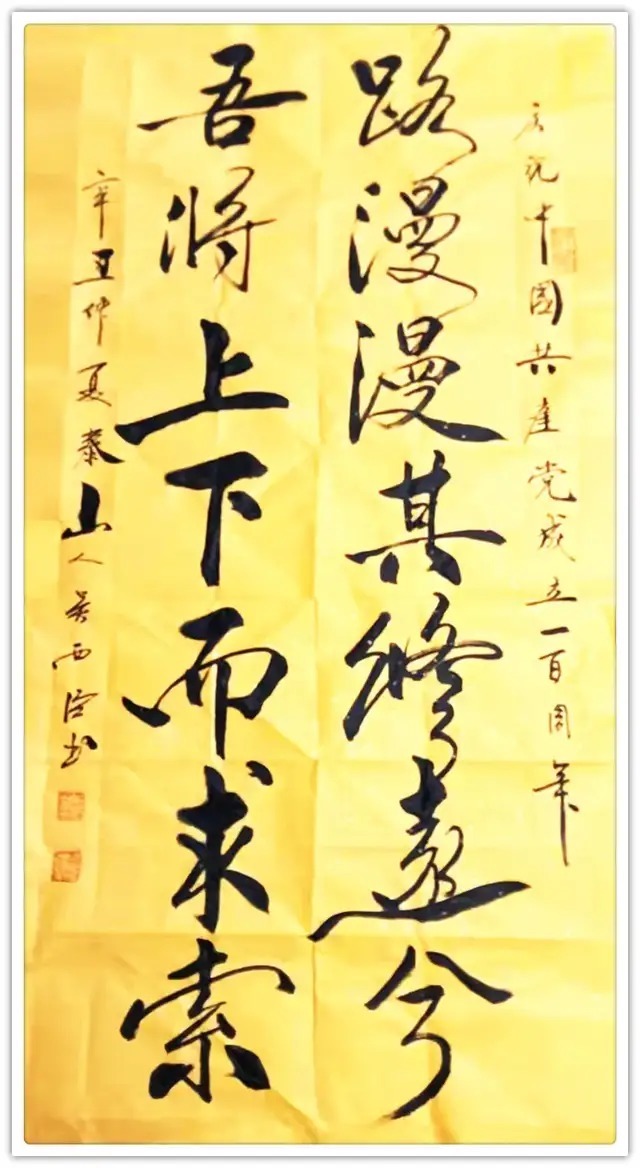 庆祝中國共產党成立一百周年
路漫漫其修遠兮
吾將上下而求索
辛丑仲夏泰山人吴西
书